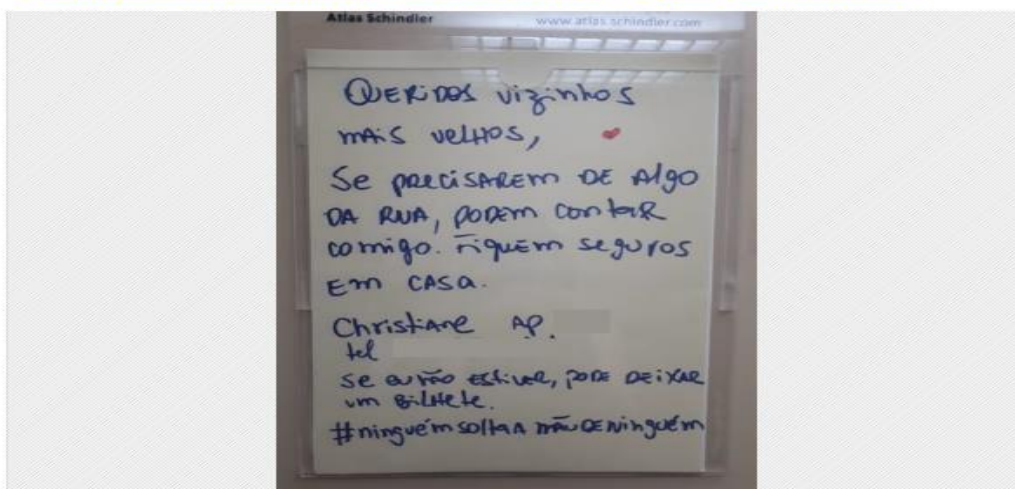 Atlas Schindler
www.atlas.schindler.com
QUERIDOS vizinhos
mAis velHos,
Se pRecisAREm DE Algo
DA RUA, PODEm contaR
comigo. Fiquem seguros
Em CASa.
ChristiAne AP.
tel
se eu não estiver, PODE DEiXAR
um BilHete.
#ninguém soltA A mão DE Ninguém